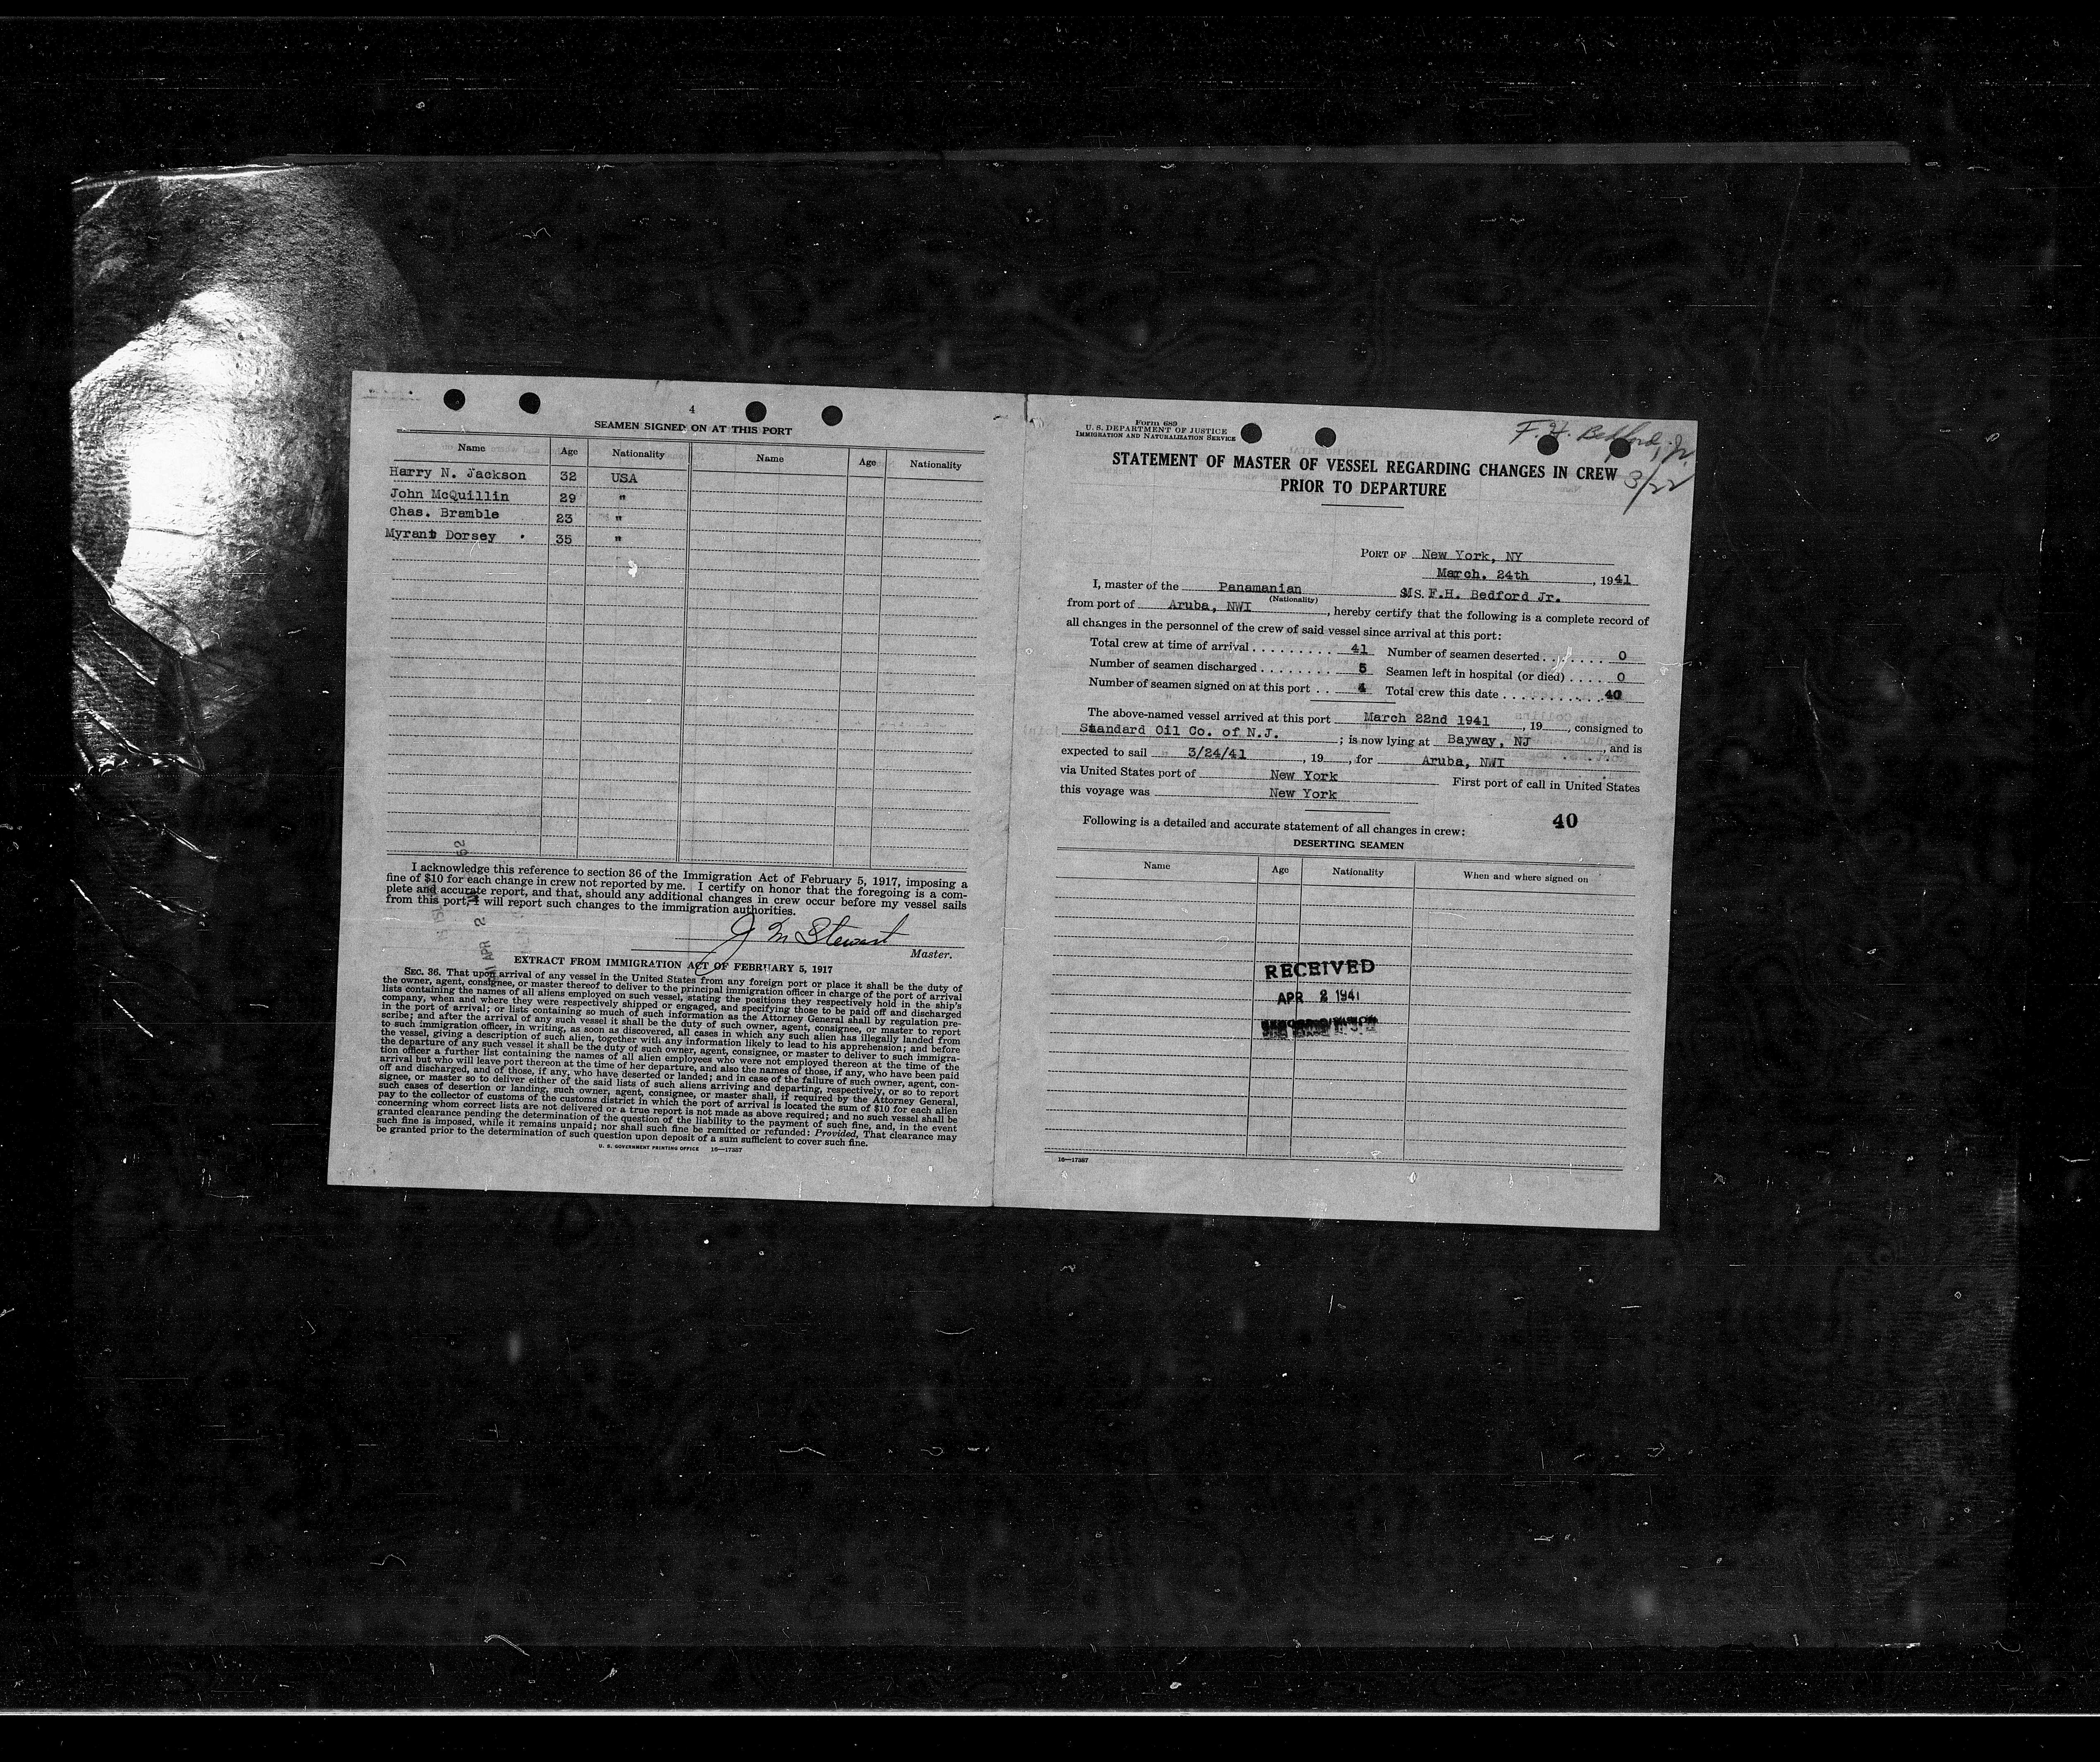 4
SEAMEN SIGNED ON AT THIS PORT
Name Age Nationality Name Age Nationality
Harry N. Jackson 32 USA
John McQuillin 29 "
Chas. Bramble 23 "
Myrant Dorsey 35 "
I acknowledge this reference to section 36 of the Immigration Act of February 5, 1917, imposing a
fine of $10 for each change in crew not reported by me. I certify on honor that the foregoing is a com-
plete and accurate report, and that, should any additional changes in crew occur before my vessel sails
from this port, I will report such changes to the immigration authorities.
J M Stewart
Master.
EXTRACT FROM IMMIGRATION ACT OF FEBRUARY 5, 1917
SEC. 36. That upon arrival of any vessel in the United States from any foreign port or place it shall be the duty of
the owner, agent, consignee, or master thereof to deliver to the principal immigration officer in charge of the port of arrival
lists containing the names of all aliens employed on such vessel, stating the positions they respectively hold in the ship's
company, when and where they were respectively shipped or engaged, and specifying those to be paid off and discharged
in the port of arrival; or lists containing so much of such information as the Attorney General shall by regulation pre-
scribe; and after the arrival of any such vessel it shall be the duty of such owner, agent, consignee, or master to report
to such immigration officer, in writing, as soon as discovered, all cases in which any such alien has illegally landed from
the vessel, giving a description of such alien, together with any information likely to lead to his apprehension; and before
the departure of any such vessel it shall be the duty of such owner, agent, consignee, or master to deliver to such immigra-
tion officer a further list containing the names of all alien employees who were not employed thereon at the time of the
arrival but who will leave port thereon at the time of her departure, and also the names of those, if any, who have been paid
off and discharged, and of those, if any, who have deserted or landed; and in case of the failure of such owner, agent, con-
signee, or master so to deliver either of the said lists of such aliens arriving and departing, respectively, or so to report
such cases of desertion or landing, such owner, agent, consignee, or master shall, if required by the Attorney General,
pay to the collector of customs of the customs district in which the port of arrival is located the sum of $10 for each alien
concerning whom correct lists are not delivered or a true report is not made as above required; and no such vessel shall be
granted clearance pending the determination of the question of the liability to the payment of such fine, and, in the event
such fine is imposed, while it remains unpaid; nor shall such fine be remitted or refunded: Provided, That clearance may
be granted prior to the determination of such question upon deposit of a sum sufficient to cover such fine.
U. S. GOVERNMENT PRINTING OFFICE 16—17387
Form 689
U. S. DEPARTMENT OF JUSTICE
IMMIGRATION AND NATURALIZATION SERVICE
F. H. Bedford, Jr.
3/22
STATEMENT OF MASTER OF VESSEL REGARDING CHANGES IN CREW
PRIOR TO DEPARTURE
PORT OF New York, NY
March. 24th, 1941
I, master of the Panamanian MS. F.H. Bedford Jr.
(Nationality)
from port of Aruba, NWI, hereby certify that the following is a complete record of
all changes in the personnel of the crew of said vessel since arrival at this port:
Total crew at time of arrival 41 Number of seamen deserted 0
Number of seamen discharged 5 Seamen left in hospital (or died) 0
Number of seamen signed on at this port 4 Total crew this date 40
The above-named vessel arrived at this port March 22nd 1941, 19, consigned to
Standard Oil Co. of N.J.; is now lying at Bayway, NJ, and is
expected to sail 3/24/41, 19, for Aruba, NWI
via United States port of New York First port of call in United States
this voyage was New York
40
Following is a detailed and accurate statement of all changes in crew:
DESERTING SEAMEN
Name Age Nationality When and where signed on
RECEIVED
APR 2 1941
16—17387